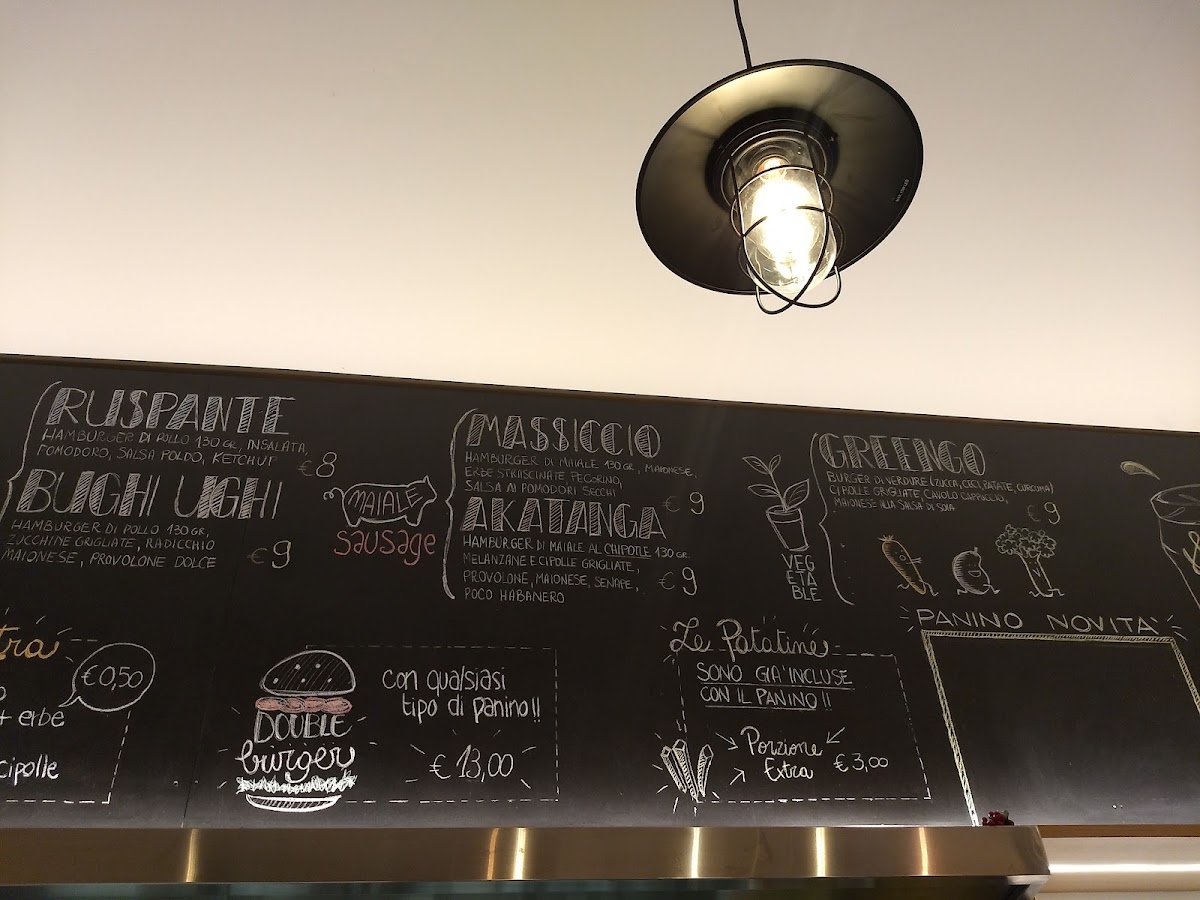 RUSPANTE
HAMBURGER DI POLLO 130 GR, INSALATA,
POMODORO, SALSA POLDO, KETCHUP
€ 8
BUGHI UIGHI
HAMBURGER DI POLLO 130 GR,
ZUCCHINE GRIGLIATE, RADICCHIO
MAIONESE, PROVOLONE DOLCE
€ 9
MAIALE
sausage
MASSICCIO
HAMBURGER DI MAIALE 130 GR, MAIONESE,
ERBE STRASCINATE, PECORINO,
SALSA AI POMODORI SECCHI
€ 9
AKATANGA
HAMBURGER DI MAIALE AL CHIPOTLE 130 GR
MELANZANE E CIPOLLE GRIGLIATE,
PROVOLONE, MAIONESE, SENAPE,
POCO HABANERO
€ 9
VEG
ETA
BLE
GREENGO
BURGER DI VERDURE (ZUCCA, CECI, PATATE, CURCUMA)
CIPOLLE GRIGLIATE, CAVOLO CAPPUCCIO,
MAIONESE ALLA SALSA DI SOIA
€ 9
tra
€ 0,50
+ erbe
cipolle
DOUBLE
burger
con qualsiasi
tipo di panino!!
€ 13,00
Le Patatine
SONO GIA' INCLUSE
CON IL PANINO!!
Porzione
Extra
€ 3,00
PANINO NOVITA'